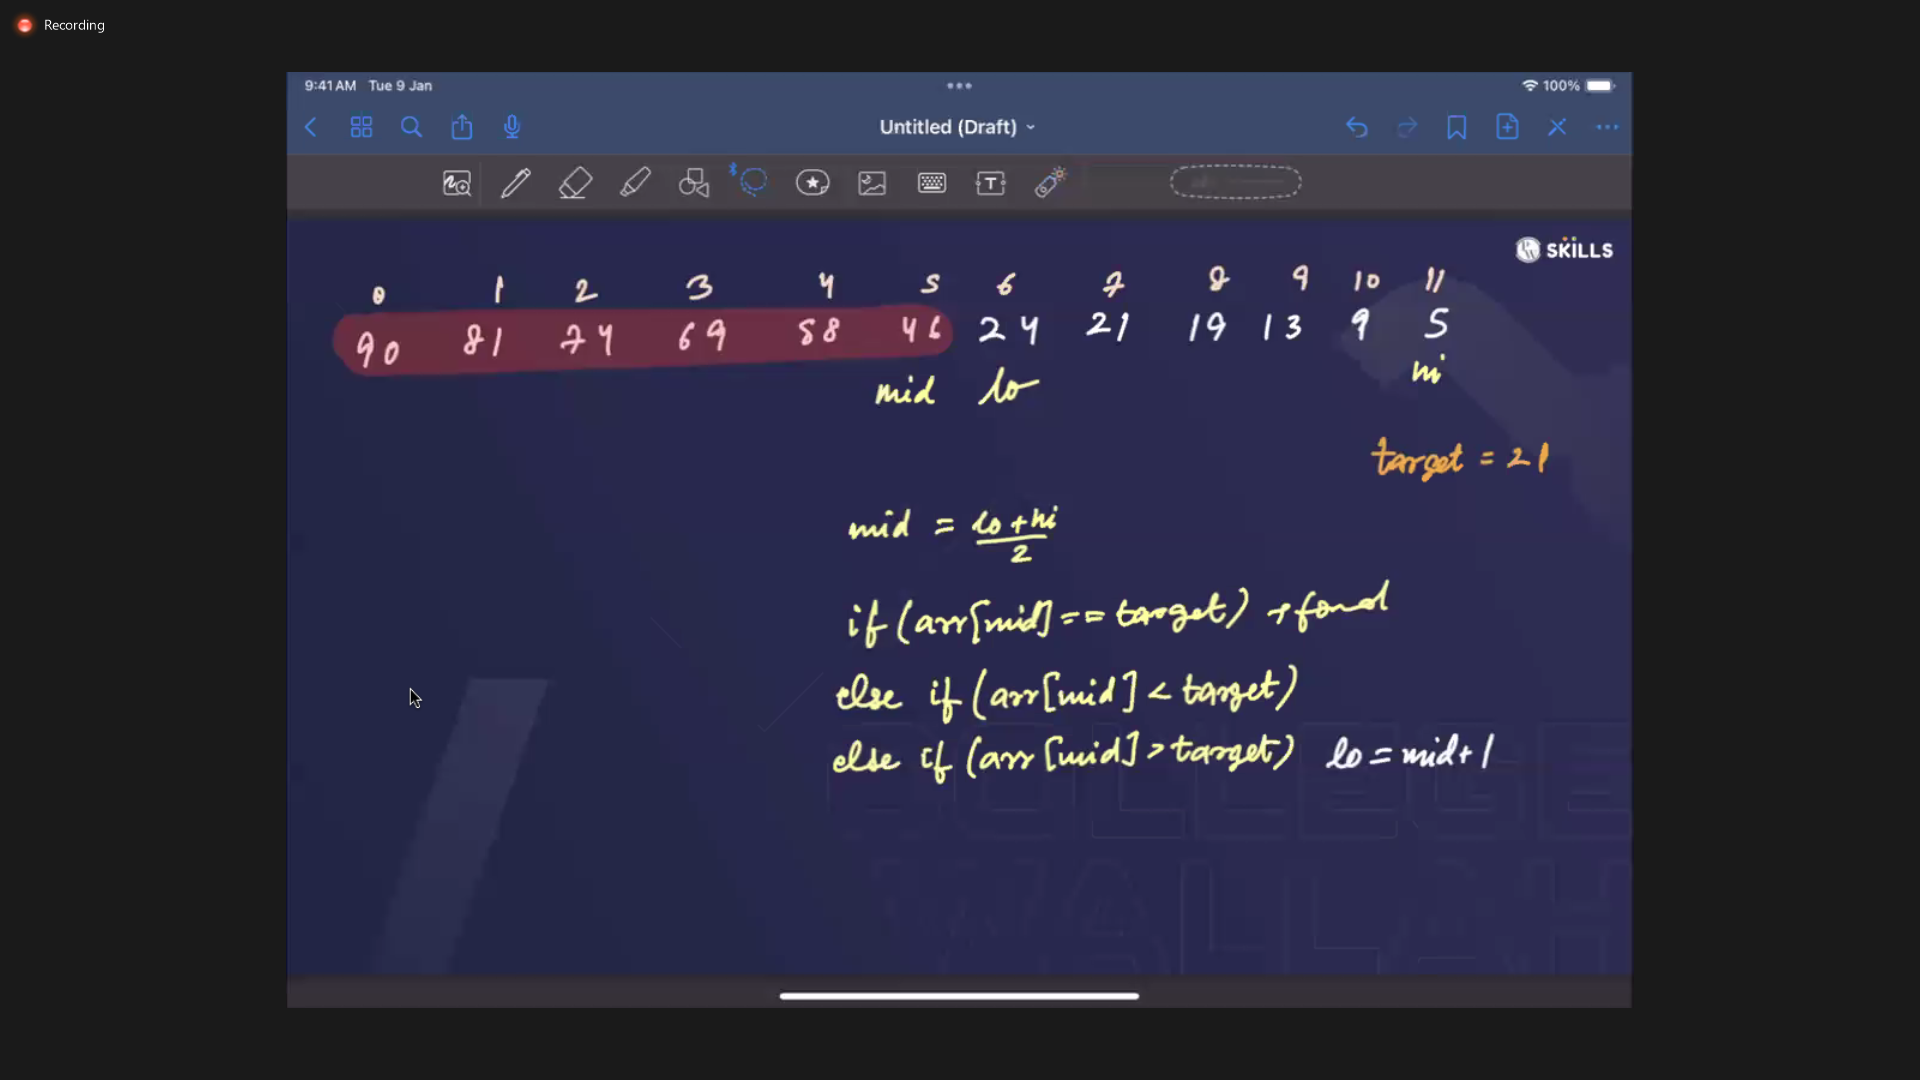 Recording
9:41 AM Tue 9 Jan
100%
Untitled (Draft)
SKILLS
0 1 2 3 4 5 6 7 8 9 10 11
90 81 74 69 58 46 24 21 19 13 9 5
mid lo hi
target = 21
mid = lo+hi
2
if (arr[mid] == target) → found
else if (arr[mid] < target)
else if (arr[mid] > target) lo = mid+1
COLLEGE
WALLAH